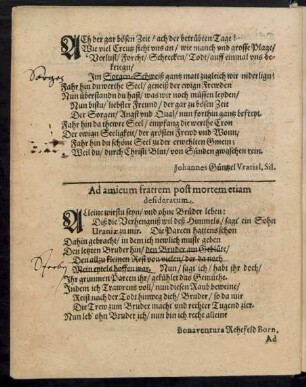 ACh der gar bösen Zeit / ach der betrübten Tage!
Wie viel Creutz steht uns an / wie manch und grosse Plage /
Verlust / Forcht / Schrecken / Todt / auff einmal uns be-
kriegen /
Im Sorgen-Schweiß gantz matt zugleich wir niderligen
Fahr hin du werthe Seel / geneiß der ewigen Frewden
Nun überstanden du hast / was wir noch müssen leyden /
Nun bistu / liebster Freund / der gar zu bösen Zeit
Der Sorgen / Angst und Qual / nun forthin gantz befreyt.
Fahr hin du thewre Seel / empfang die werthe Cron
Der ewigen Seeligkeit / der grösten Frewd und Wonn /
Fahr hin du schöne Seel zu der erwehlten Gmein /
Weil du / durch Christi Blut / von Sünden gwaschen rein.
Johannes Güntzel Vratisl. Sil.
Ad amicum fratrem post mortem etiam
desideratum.
Alleine wirstu seyn / und ohne Brüder leben:
Diß die Verhengniß will des Himmels / sagt ein Sohn
Uraniæ zu mir. Die Parcen hattens schon
Dahin gebracht / in dem ich newlich muste geben
Den letzten Bruder hin / den Bruder am Geblüte /
Den allzu kleinen Rest von vielen / der da noch
Mein eintels hoffen war. Nun / sagt ich / habt ihr doch /
Ihr grimmen Parcen ihr / gefühlet das Gemüthe.
Indem ich Trawrens voll / nun diesen Raub beweine /
Reist nach der Todt hinweg dich / Bruder / so da mir
Die Trew zum Bruder macht und rechter Tugend zier.
Nun leb' ohn Bruder ich / nun bin ich recht alleine
Bonaventura Rehefeld Born.
Ad